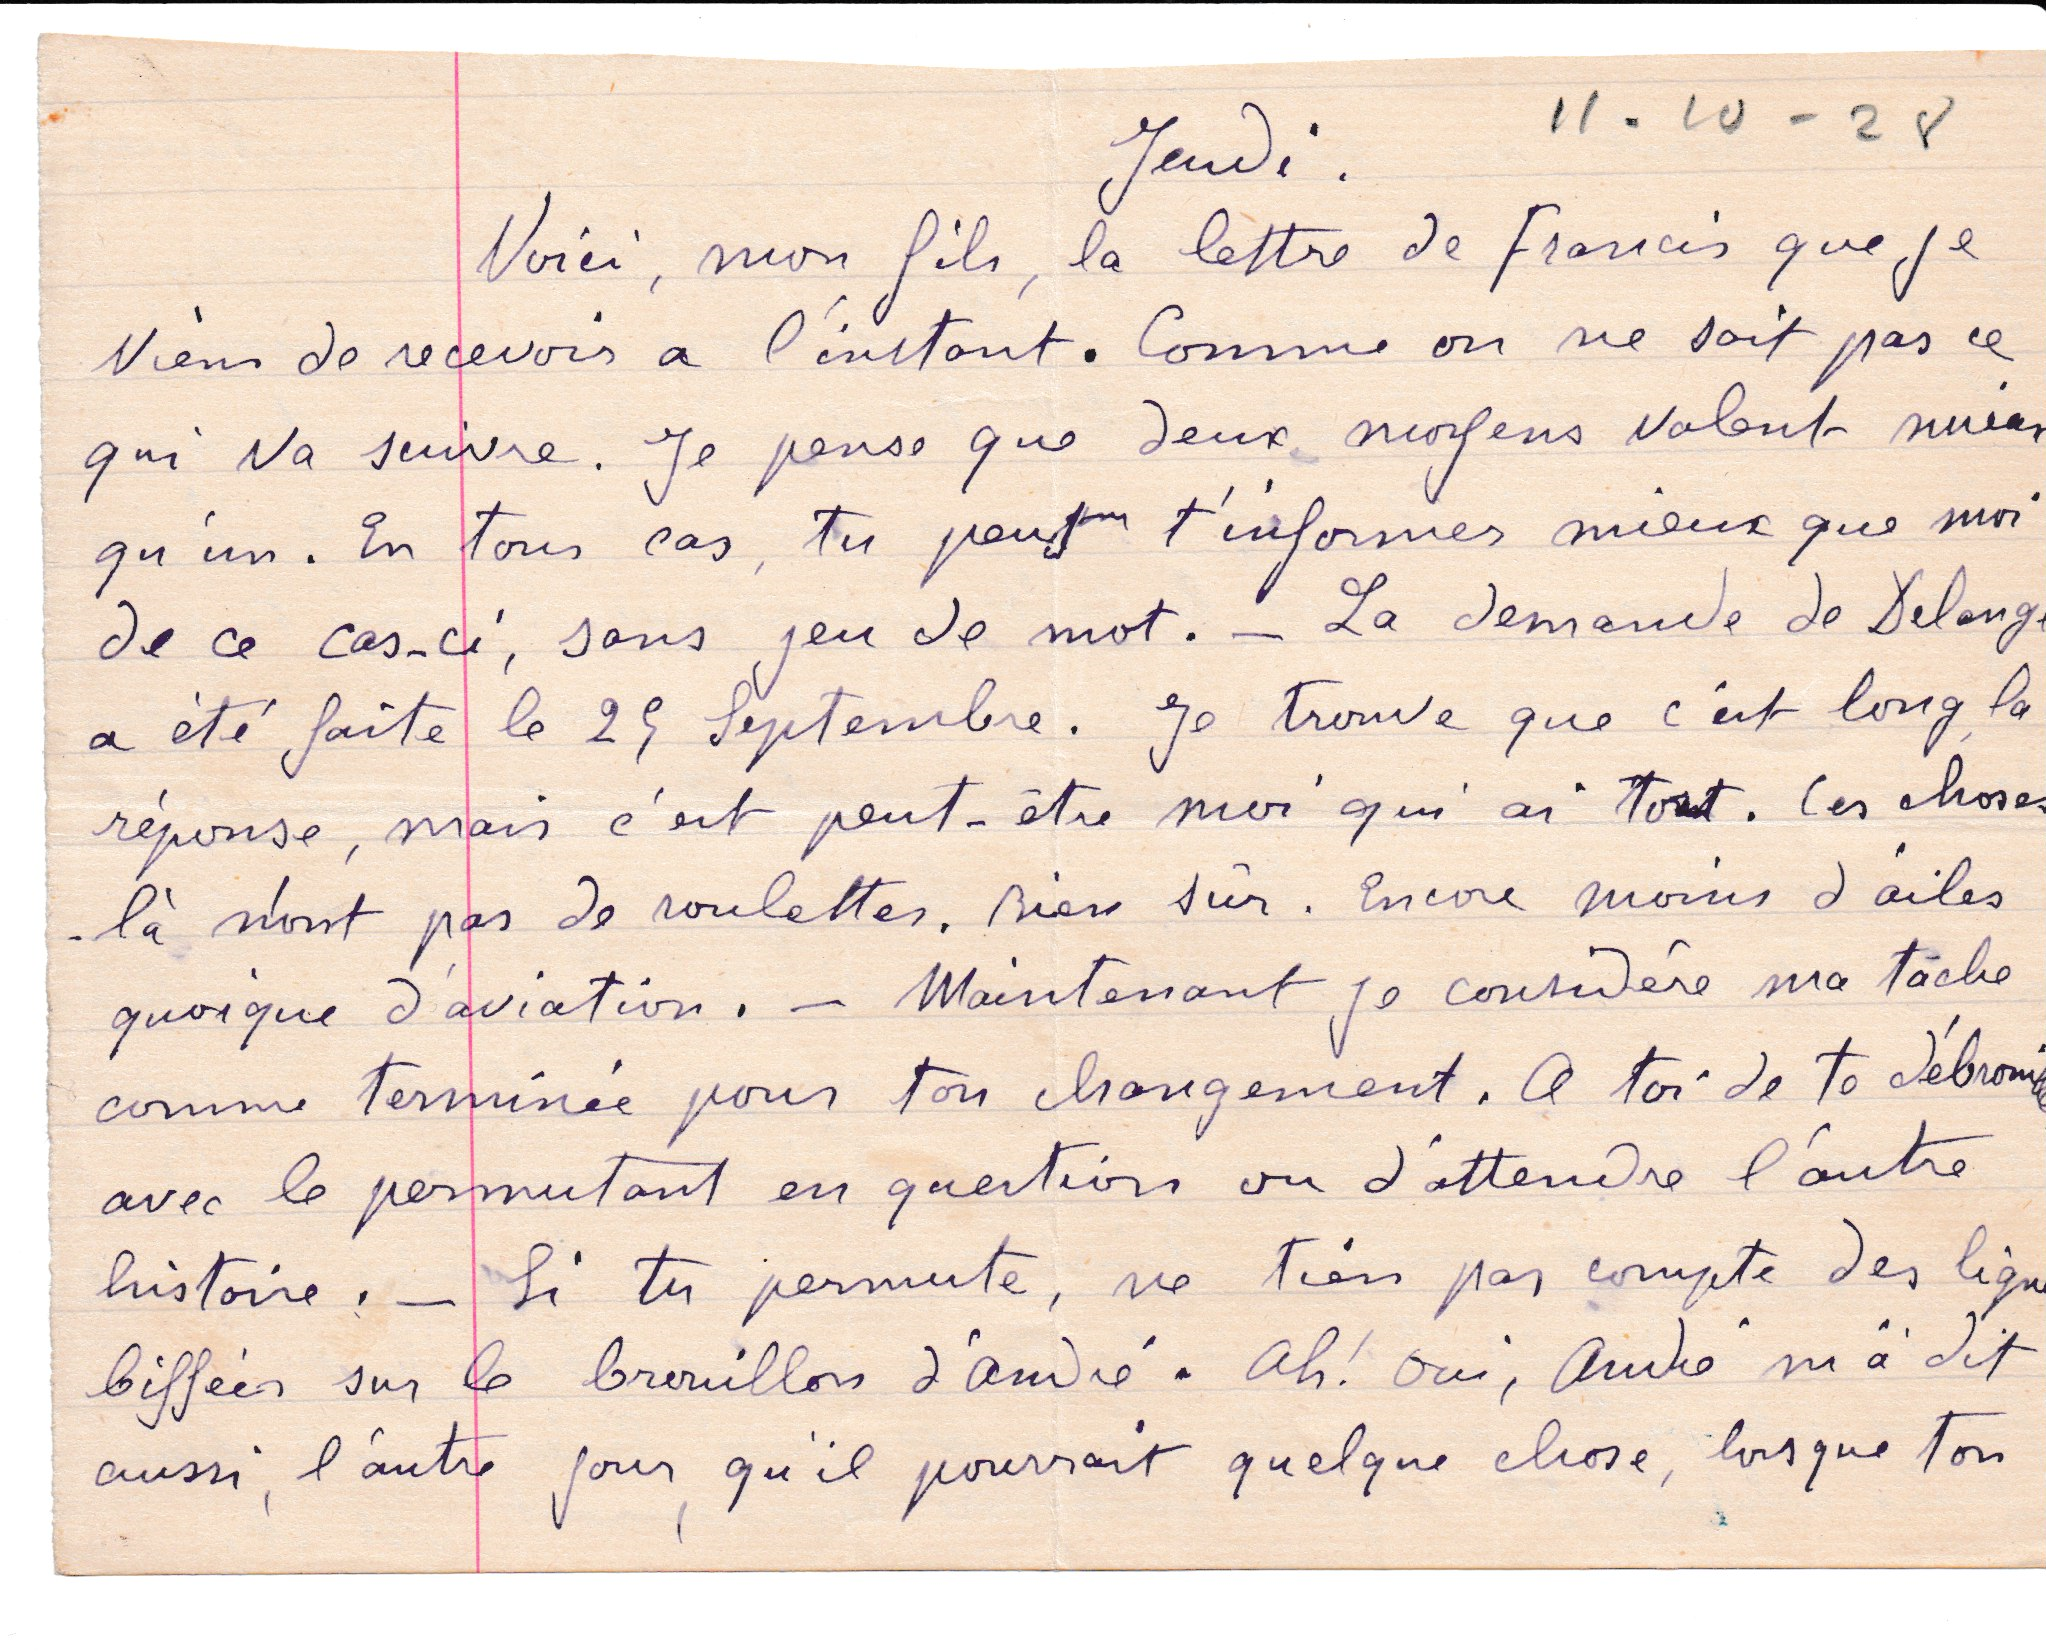 11-10-28
Jeudi.
Voici, mon fils, la lettre de Francis que je
viens de recevoir a l'instant. Comme on ne sait pas ce
qui va suivre. Je pense que deux moyens valent mieux
qu'un. En tous cas, tu peux t'informer mieux que moi
de ce cas-ci, sans jeu de mot. — La demande de Delange
a été faite le 29 Septembre. Je trouve que c'est long, la
réponse, mais c'est peut-être moi qui ai tort. Ces choses
-là n'ont pas de roulettes. Bien sûr. Encore moins d'ailes
quoique d'aviation. — Maintenant je considère ma tâche
comme terminée pour ton changement. A toi de te
avec le permutant en question ou d'attendre l'autre
histoire. — Si tu permute, ne tien pas compte des lignes
biffées sur le brouillon d'André. Ah! oui, André m'a dit
aussi, l'autre jour, qu'il pourrait quelque chose, lorsque ton